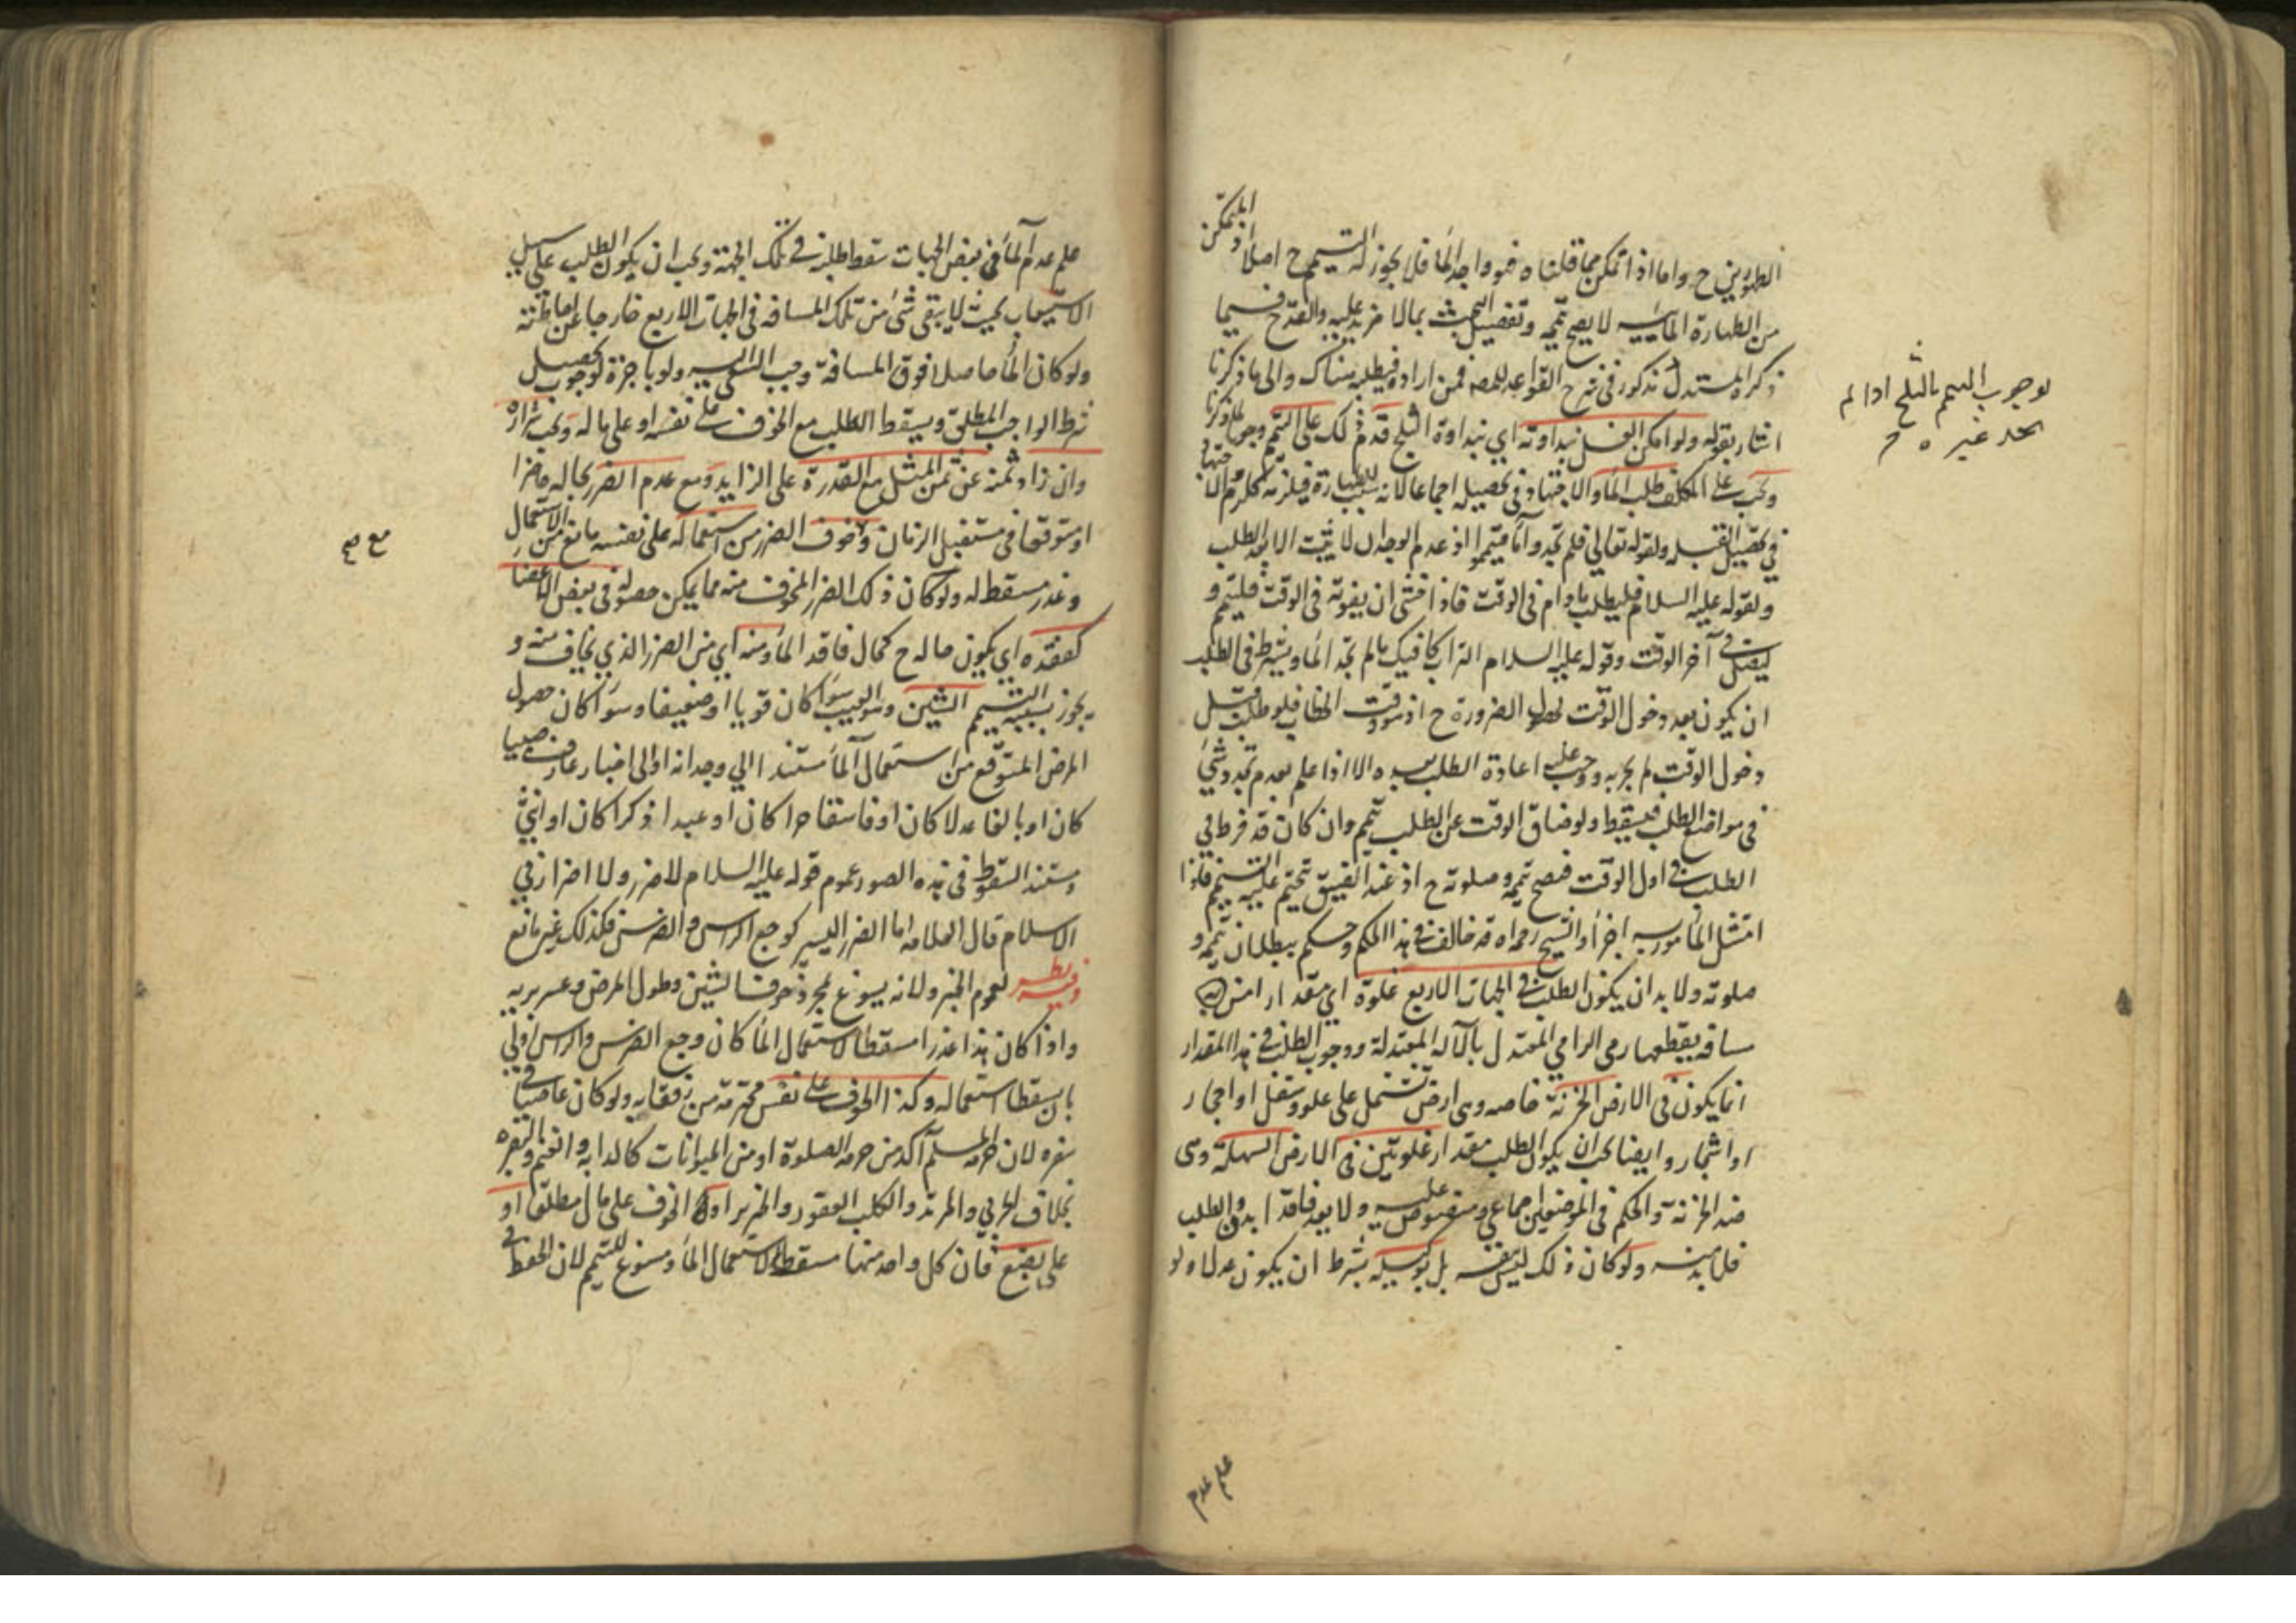 الطهورين ح واما اذا تمكن مما قلناه فهو واجد الماء فلا يجوز له التيمم ح اصلا اذ المتمكن
من الطهارة المائيه لا يصح تيممه وتفصيل البحث بمالا مزيد عليه والقدح فيما
ذكره المستدل مذكور في شرح القواعد للمصنف فمن اراده فيطلبه هناك والى ما ذكرنا
اشار بقوله ولو امكن الغسل بنداوته اي بنداوة الثلج قدم ذلك على التيمم وجوبا لما ذكرنا
ويجب على المكلف طلب الماء والاجتهاد في تحصيله اجماعا لانه سبب للطهارة فيلزمه كلزوم الاجتهاد
في تحصيل القبله ولقوله تعالى فلم تجدوا ماء فتيمموا اذ عدم الوجدان لا يثبت الا بعد الطلب
ولقوله عليه السلام فليطلب مادام في الوقت فاذا خشى ان يفوته في الوقت فليتيمم و
ليصل في آخر الوقت وقوله عليه السلام التراب كافيك مالم تجد الماء ويشترط في الطلب
ان يكون بعد دخول الوقت لحصول الضرورة ح اذ هو وقت الخطاب فلو طلب قبل
دخول الوقت لم يجزه ووجب عليه اعادة الطلب بعده الا اذا علم بعدم تجدد شيء
في مواضع الطلب فيسقط ولو ضاق الوقت عن الطلب تيمم وان كان قد فرط في
الطلب في اول الوقت فيصح تيممه وصلوته ح اذ عند الضيق تحتم عليه التيمم فاذا
امتثل المأمور به اجزأ والشيخ رحمه اه قد خالف في هذا الحكم وحكم ببطلان تيممه و
صلوته ولابد ان يكون الطلب في الجهات الاربع غلوة اي مقدار امن
مسافه يقطعها رمى الرامي المعتدل بالآله المعتدلة ووجوب الطلب في هذا المقدار
انما يكون في الارض الحزنة خاصه وهى ارض تشتمل على علو وسفل او احجار
او اشجار وايضا يجب ان يكون الطلب مقدار غلوتين في الارض السهلة وهى
ضد الحزنة والحكم في الموضعين اجماعي ومنصوص عليه ولا يعد فاقدا بدون الطلب
فلابد منه ولو كان ذلك ليس بنفسه بل بوكيله بشرط ان يكون عدلا ولو
لوجوب التيمم بالثلج اذا لم
يجد غيره ح
علم عدم
علم عدم الماء في بعض الجهات سقط طلبه في تلك الجهة ويجب ان يكون الطلب على سبيل
الاستيعاب بحيث لا يبقى شئ من تلك المسافه في الجهات الاربع خارجا عن احاطته
ولو كان الماء حاصلا فوق المسافة وجب السعي اليه ولو باجرة لوجوب تحصيل
شرط الواجب المطلق ويسقط الطلب مع الخوف على نفسه او على ماله ويجب شراؤه
وان زاد ثمنه عن ثمن المثل مع القدرة على الزايد ومع عدم الضرر بحاله حاضرا
او متوقعا في مستقبل الزمان وخوف الضرر من استعماله على نفسه مانع من الاستعمال
وعذر مسقط له ولو كان ذلك الضرر المخوف منه مما يمكن حصوله في بعض الاعضاء
كفقده اي يكون حاله ح كحال فاقد الماء ومنه اي من الضرر الذي يخاف منه و
يجوز بسببه التيمم الشين وهو العيب سواء كان قويا او ضعيفا وسواء كان حصول
المرض المتوقع من استعمال الماء مستندا الي وجدانه او الى اخبار عارف صبيا
كان او بالغا عدلا كان او فاسقا حرا كان او عبدا ذكرا كان او انثى
ومستند السقوط في هذه الصور عموم قوله عليه السلام لا ضرر ولا اضرار في
الاسلام قال العلامه اما الضرر اليسير كوجع الراس والضرس فكذلك غير مانع
وفيه نظر لعموم الخبر ولانه يسوغ لمجرد خوف الشين وطول المرض وعسر برءه
واذا كان هذا عذرا مسقطا لاستعمال الماء كان وجع الضرس والراس اولى
بان يسقط استعماله وكذا الخوف على نفس محترمة من رفقايه ولو كان عاصيا في
سفره لان حرمة المسلم آكد من حرمة الصلوة او من الحيوانات كالدابه والغنم والبقره
بخلاف الحربي والمرتد والكلب العقور والخنزير او الخوف على مال مطلقا او
على بضع فان كل واحد منها مسقط لاستعمال الماء ومسوغ للتيمم لان الحفظ في